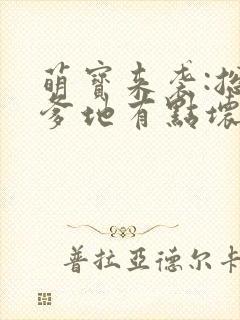 萌寶來袭:總
爹地有點壞
普拉亞德尔卡